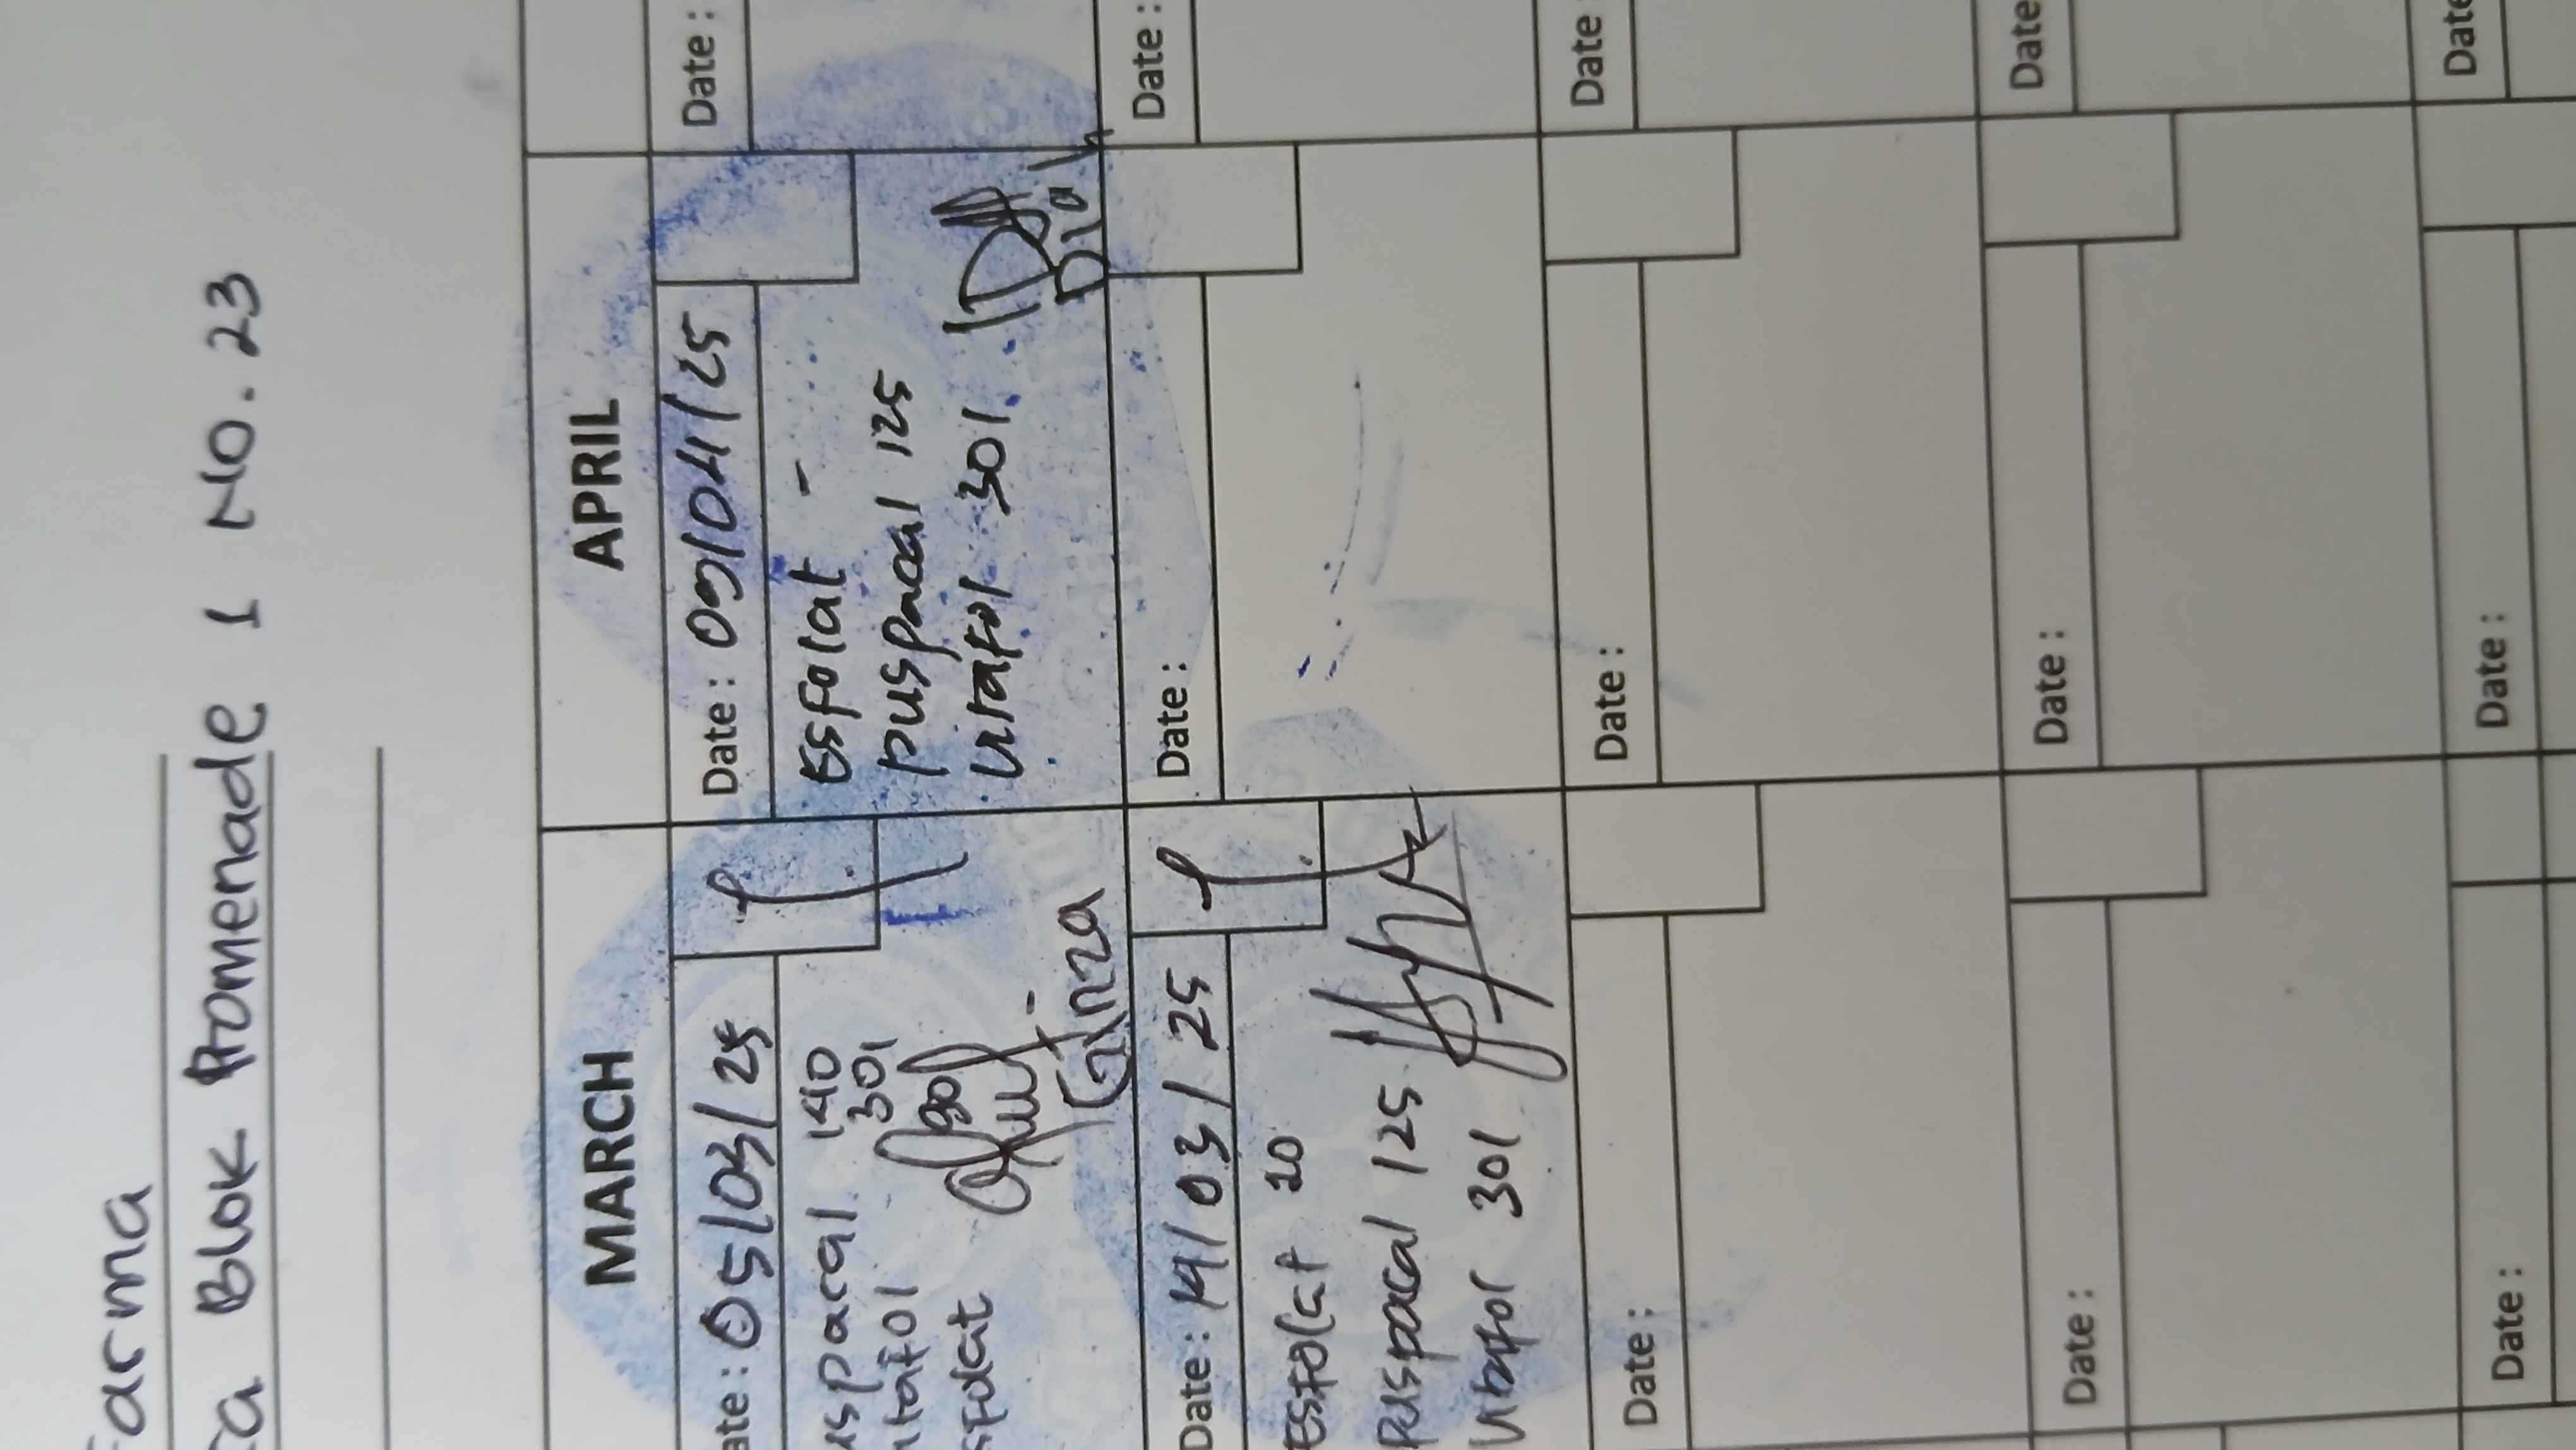 Farma
ta Blok Promenade 1 No. 23
MARCH
APRIL
ate : 05/03/25
uspacal 140
itafol 301
sfolat 30
Ginza
Date : 09/04/25
Esfolat -
puspacal 125
Vitafol 301
Diah
Date :
Date : 14/03/25
Esfolat 20
Puspacal 125
Vitafol 301
Date :
Date :
Date :
Date :
Date
Date :
Date :
Date
Date :
Date :
Date